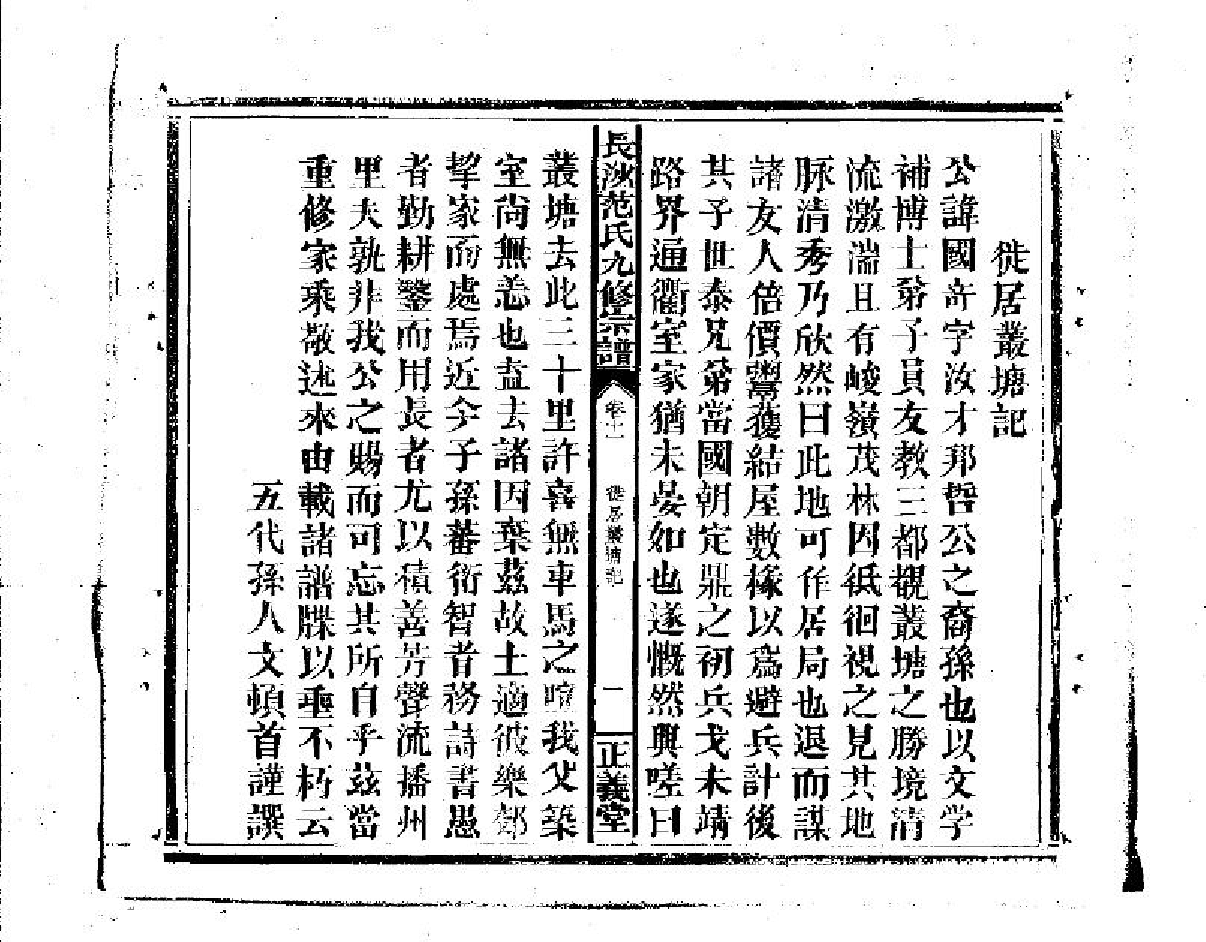 徙居叢塘記
公諱國奇字汝才邦哲公之裔孫也以文学
補博士弟子員友教三都覩叢塘之勝境清
流激湍且有峻嶺茂林因低徊視之見其地
脉清秀乃欣然曰此地可作居局也退而謀
諸友人倍價鬻獲結屋數椽以爲避兵計後
其子世泰兄弟當國朝定鼎之初兵戈未靖
路界通衢室家猶未晏如也遂慨然興嗟曰
長沙范氏九修宗譜
卷十一
徙居叢塘記
一
正義堂
叢塘去此三十里許喜無車馬之喧我父築
室尚無恙也盍去諸因棄茲故土適彼樂郊
挈家而處焉近今子孫蕃衍智者務詩書愚
者勤耕鑿而用長者尤以積善芳聲流播州
里夫孰非我公之賜而可忘其所自乎茲當
重修家乘敬述來由載諸譜牒以垂不朽云
五代孫人文頓首謹譔